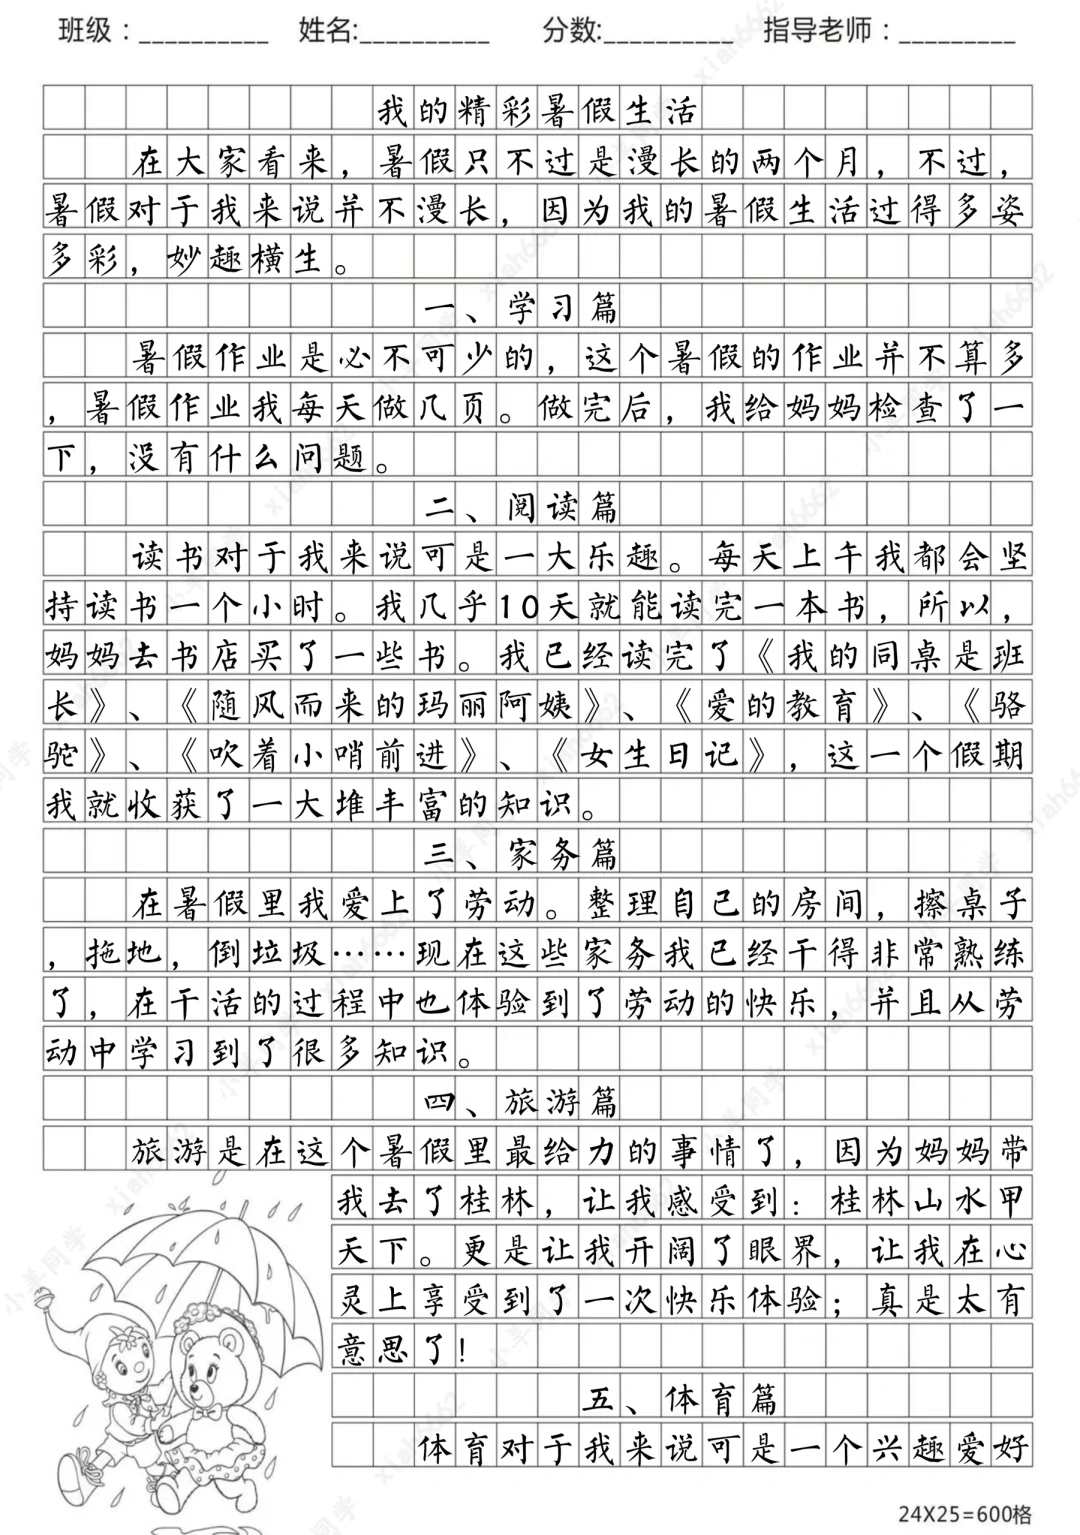 班级：__________ 姓名:__________ 分数:__________ 指导老师：_________
我的精彩暑假生活
在大家看来，暑假只不过是漫长的两个月，不过，
暑假对于我来说并不漫长，因为我的暑假生活过得多姿
多彩，妙趣横生。
一、学习篇
暑假作业是必不可少的，这个暑假的作业并不算多
，暑假作业我每天做几页。做完后，我给妈妈检查了一
下，没有什么问题。
二、阅读篇
读书对于我来说可是一大乐趣。每天上午我都会坚
持读书一个小时。我几乎10天就能读完一本书，所以，
妈妈去书店买了一些书。我已经读完了《我的同桌是班
长》、《随风而来的玛丽阿姨》、《爱的教育》、《骆
驼》、《吹着小哨前进》、《女生日记》，这一个假期
我就收获了一大堆丰富的知识。
三、家务篇
在暑假里我爱上了劳动。整理自己的房间，擦桌子
，拖地，倒垃圾……现在这些家务我已经干得非常熟练
了，在干活的过程中也体验到了劳动的快乐，并且从劳
动中学习到了很多知识。
四、旅游篇
旅游是在这个暑假里最给力的事情了，因为妈妈带
我去了桂林，让我感受到：桂林山水甲
天下。更是让我开阔了眼界，让我在心
灵上享受到了一次快乐体验；真是太有
意思了！
五、体育篇
体育对于我来说可是一个兴趣爱好
24X25=600格
小羊同学 xiah6662